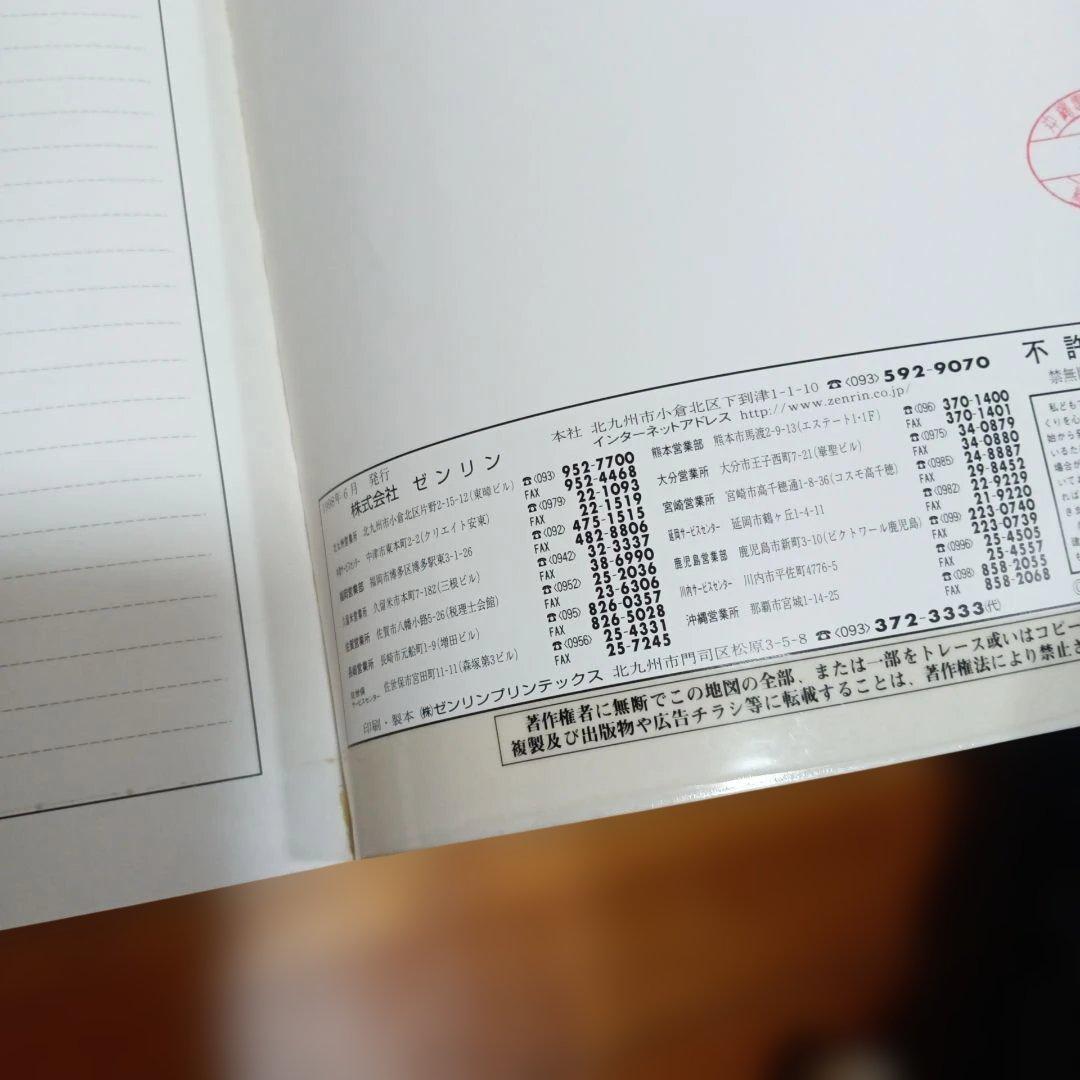 1998年6月 発行
株式会社 ゼンリン
本社 北九州市小倉北区下到津1-1-10 ☎〈093〉592-9070
インターネットアドレス http://www.zenrin.co.jp/
北九州営業所 北九州市小倉北区片野2-15-12(東峰ビル) ☎〈093〉952-7700
FAX 952-4468
中津サービスセンター 中津市東本町2-2(クリエイト安東) ☎〈0979〉22-1093
FAX 22-1519
福岡営業部 福岡市博多区博多駅東3-1-26 ☎〈092〉475-1515
FAX 482-8806
久留米営業所 久留米市本町7-182(三根ビル) ☎〈0942〉32-3337
FAX 38-6990
佐賀営業所 佐賀市八幡小路5-26(税理士会館) ☎〈0952〉25-2036
FAX 23-6306
長崎営業所 長崎市元船町1-9(増田ビル) ☎〈095〉826-0357
FAX 826-5028
佐世保サービスセンター 佐世保市宮田町11-11(森塚第3ビル) ☎〈0956〉25-4331
FAX 25-7245
熊本営業部 熊本市馬渡2-9-13(エステート1・1F) ☎〈096〉370-1400
FAX 370-1401
大分営業所 大分市王子西町7-21(華聖ビル) ☎〈0975〉34-0879
FAX 34-0880
宮崎営業所 宮崎市高千穂通1-8-36(コスモ高千穂) ☎〈0985〉24-8887
FAX 29-8452
延岡サービスセンター 延岡市鶴ヶ丘1-4-11 ☎〈0982〉22-9229
FAX 21-9220
鹿児島営業部 鹿児島市新町3-10(ビクトワール鹿児島) ☎〈099〉223-0740
FAX 223-0739
川内サービスセンター 川内市平佐町4776-5 ☎〈0996〉25-4505
FAX 25-4557
沖縄営業所 那覇市宮城1-14-25 ☎〈098〉858-2055
FAX 858-2068
印刷・製本 (株)ゼンリンプリンテックス 北九州市門司区松原3-5-8 ☎〈093〉372-3333(代)
不許
禁無
私ども
くりを心
始から
いるた
場合が
いて
れば
著作権者に無断でこの地図の全部、または一部をトレース或いはコピー
複製及び出版物や広告チラシ等に転載することは、著作権法により禁止さ